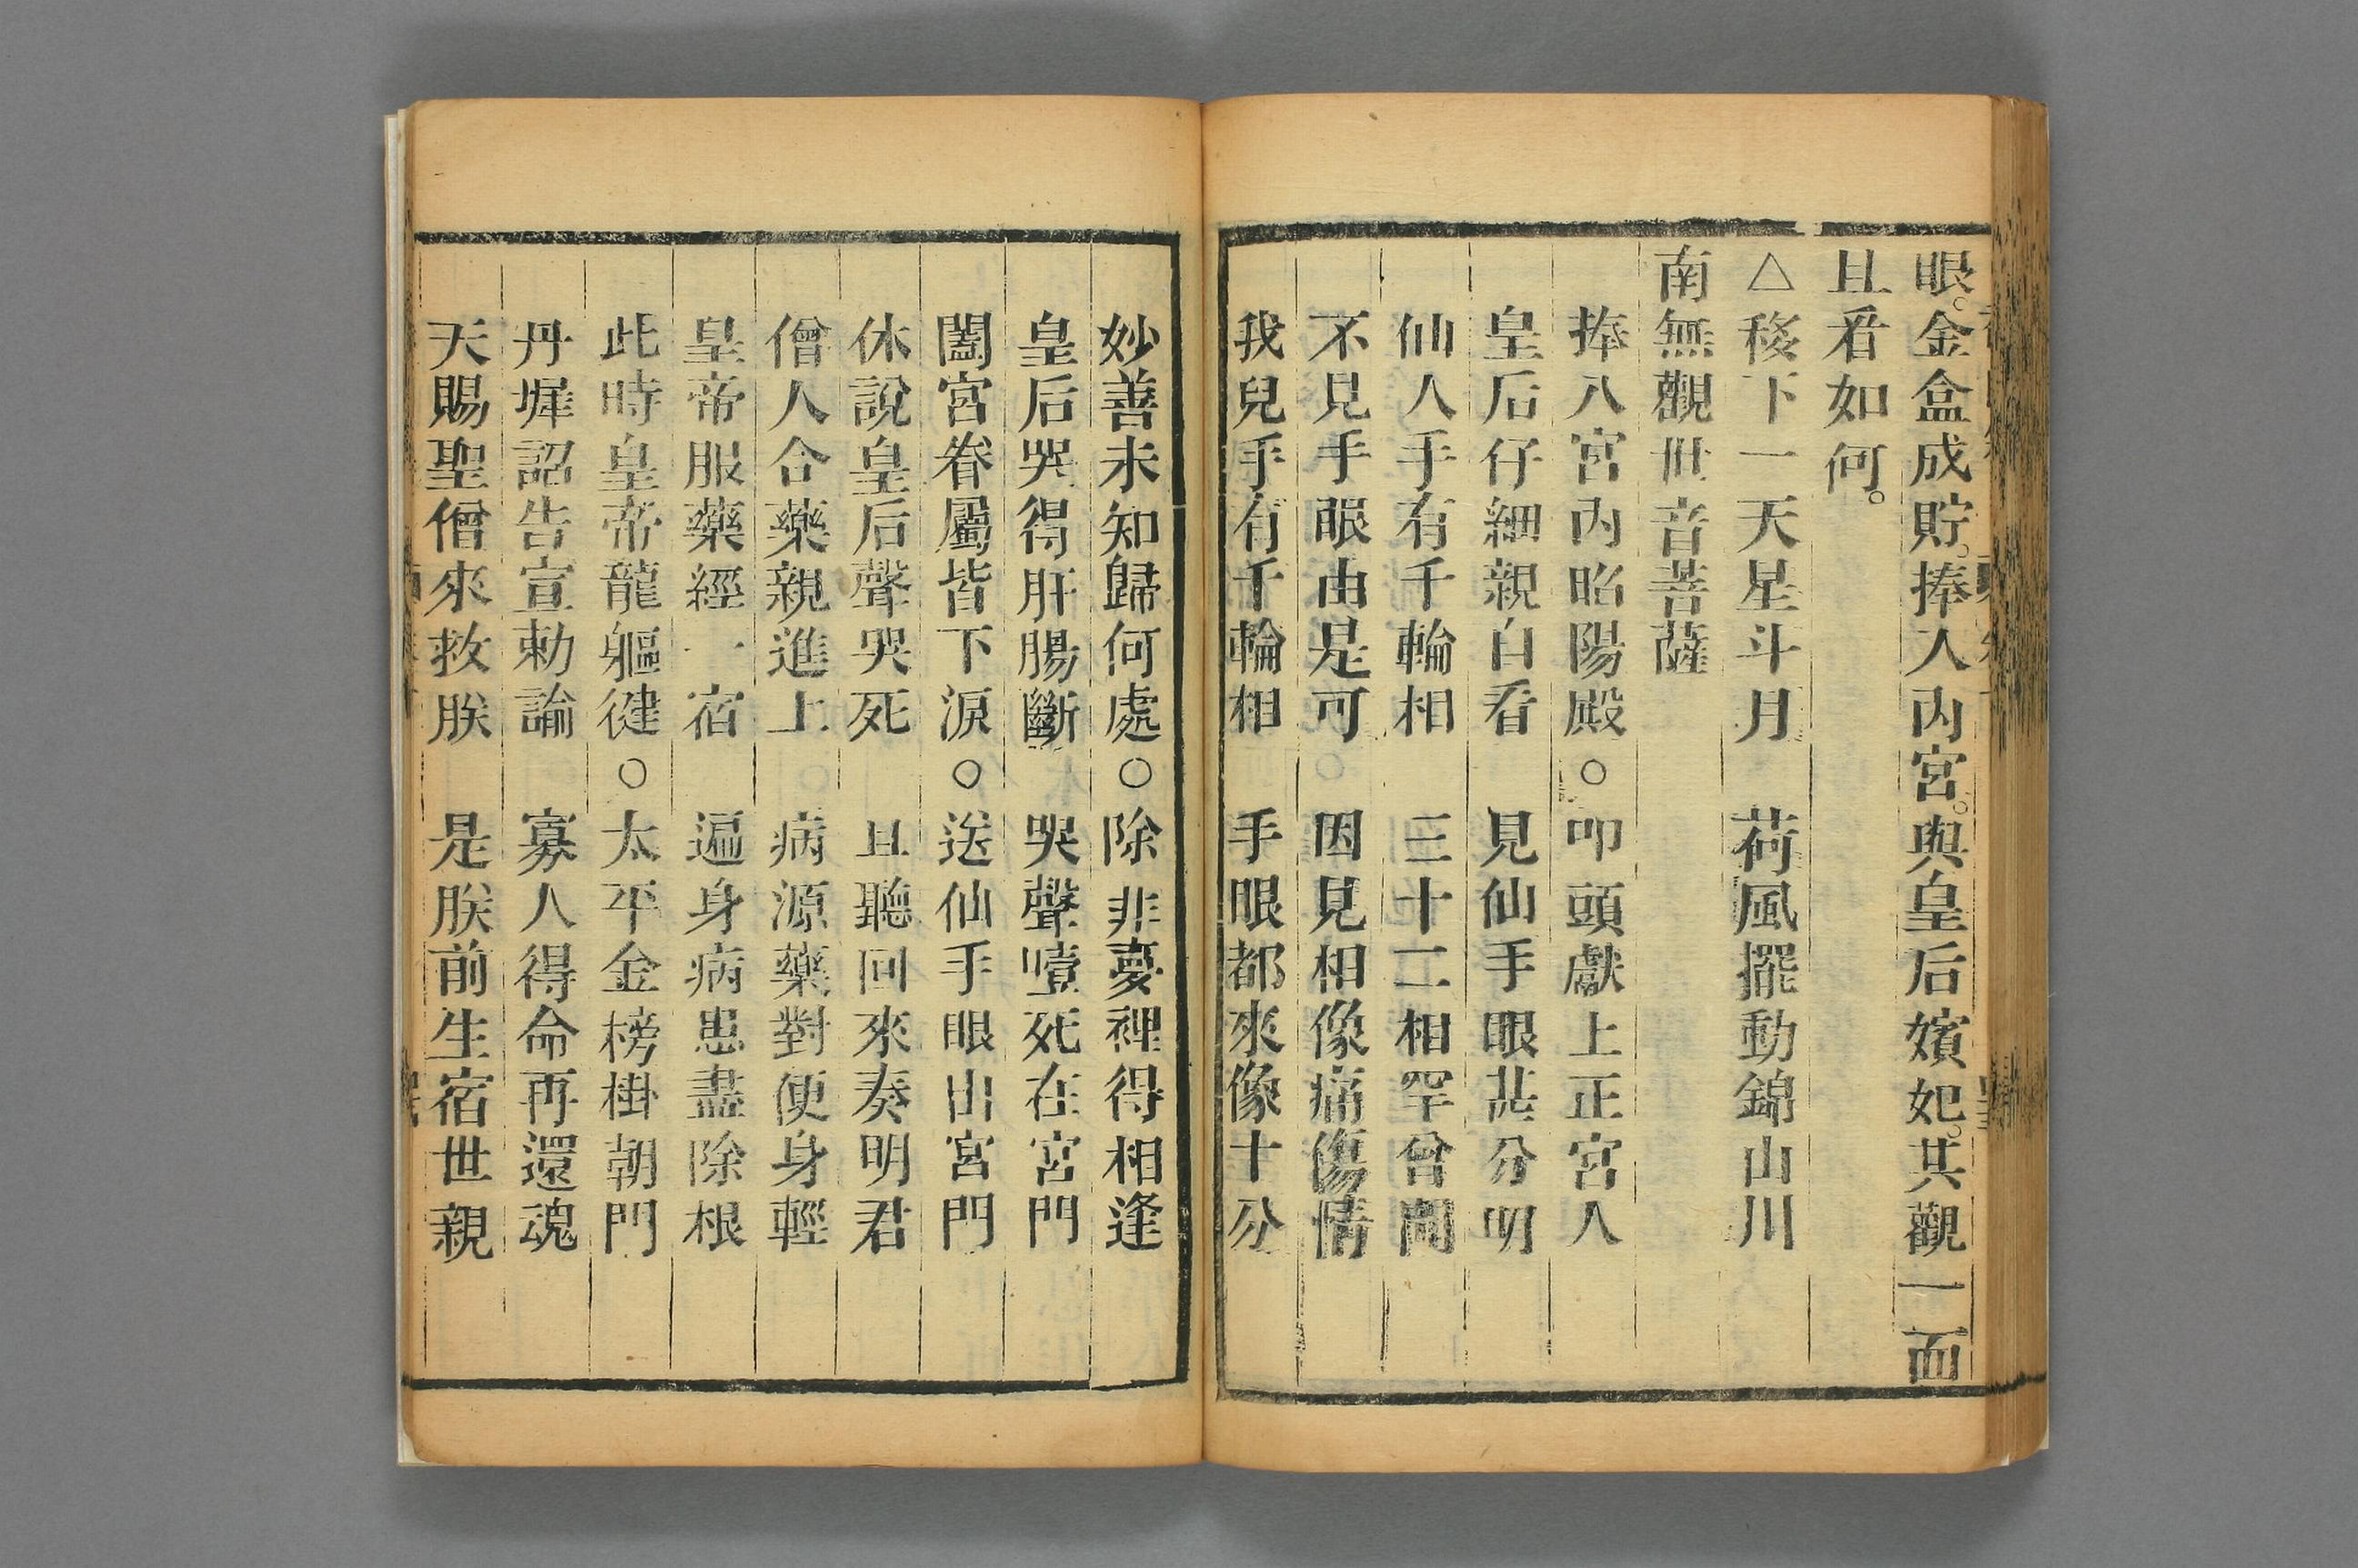 眼。金盒成貯。捧入內宮。與皇后嬪妃。共觀一面
且看如何。
△移下一天星斗月　荷風擺動錦山川
南無觀世音菩薩
捧入宮內昭陽殿○叩頭獻上正宮人
皇后仔細親自看　見仙手眼甚分明
仙人手有千輪相　三十二相罕曾聞
不見手眼由是可　因見相像痛傷情
我兒手有千輪相　手眼都來像十分
妙善未知歸何處○除非夢裡得相逢
皇后哭得肝腸斷　哭聲噎死在宮門
闔宮眷屬皆下淚○送仙手眼出宮門
休說皇后聲哭死　且聽回來奏明君
僧人合藥親進上　病源藥對便身輕
皇帝服藥經一宿　遍身病患盡除根
此時皇帝龍軀健○太平金榜掛朝門
丹墀詔告宣勅諭　寡人得命再還魂
天賜聖僧來救朕　是朕前生宿世親